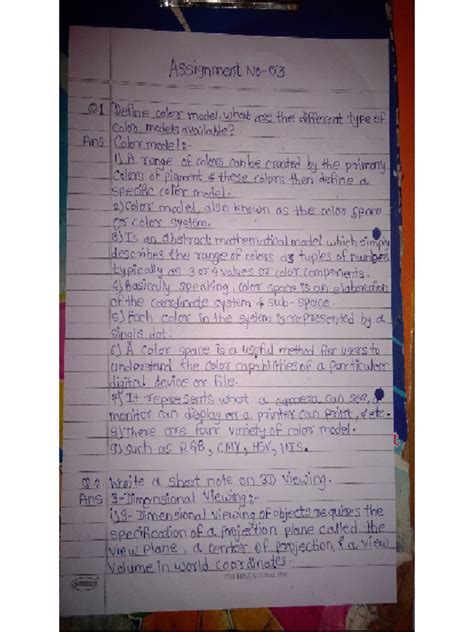 Assignment No-03
Q1 Define color model. what are the different type of
color models available?
Ans Color model:-
1) A range of colors can be created by the primary
colors of pigment & these colors then define a
specific color model.
2) Color model also known as the color space
or color system.
3) Is an abstract mathematical model which simply
describes the range of colors as tuples of numbers
typically as 3 or 4 values or color components.
4) Basically speaking, color space is an elaboration
of the coordinate system & sub-space.
5) Each color in the system is represented by a
single dot.
6) A color space is a useful method for users to
understand the color capabilities of a particular
digital device or file.
7) It represents what a camera can see, a
monitor can display or a printer can print, & etc.
8) There are four variety of color model.
9) Such as RGB, CMY, HSV, HIS.
Q.2. Write a short note on 3D Viewing.
Ans 3-Dimensional Viewing:-
i) 3-Dimensional viewing of objects requires the
specification of a projection plane called the
view plane, a center of projection, & a view
volume in world coordinates.
FOR EDUCATIONAL USE